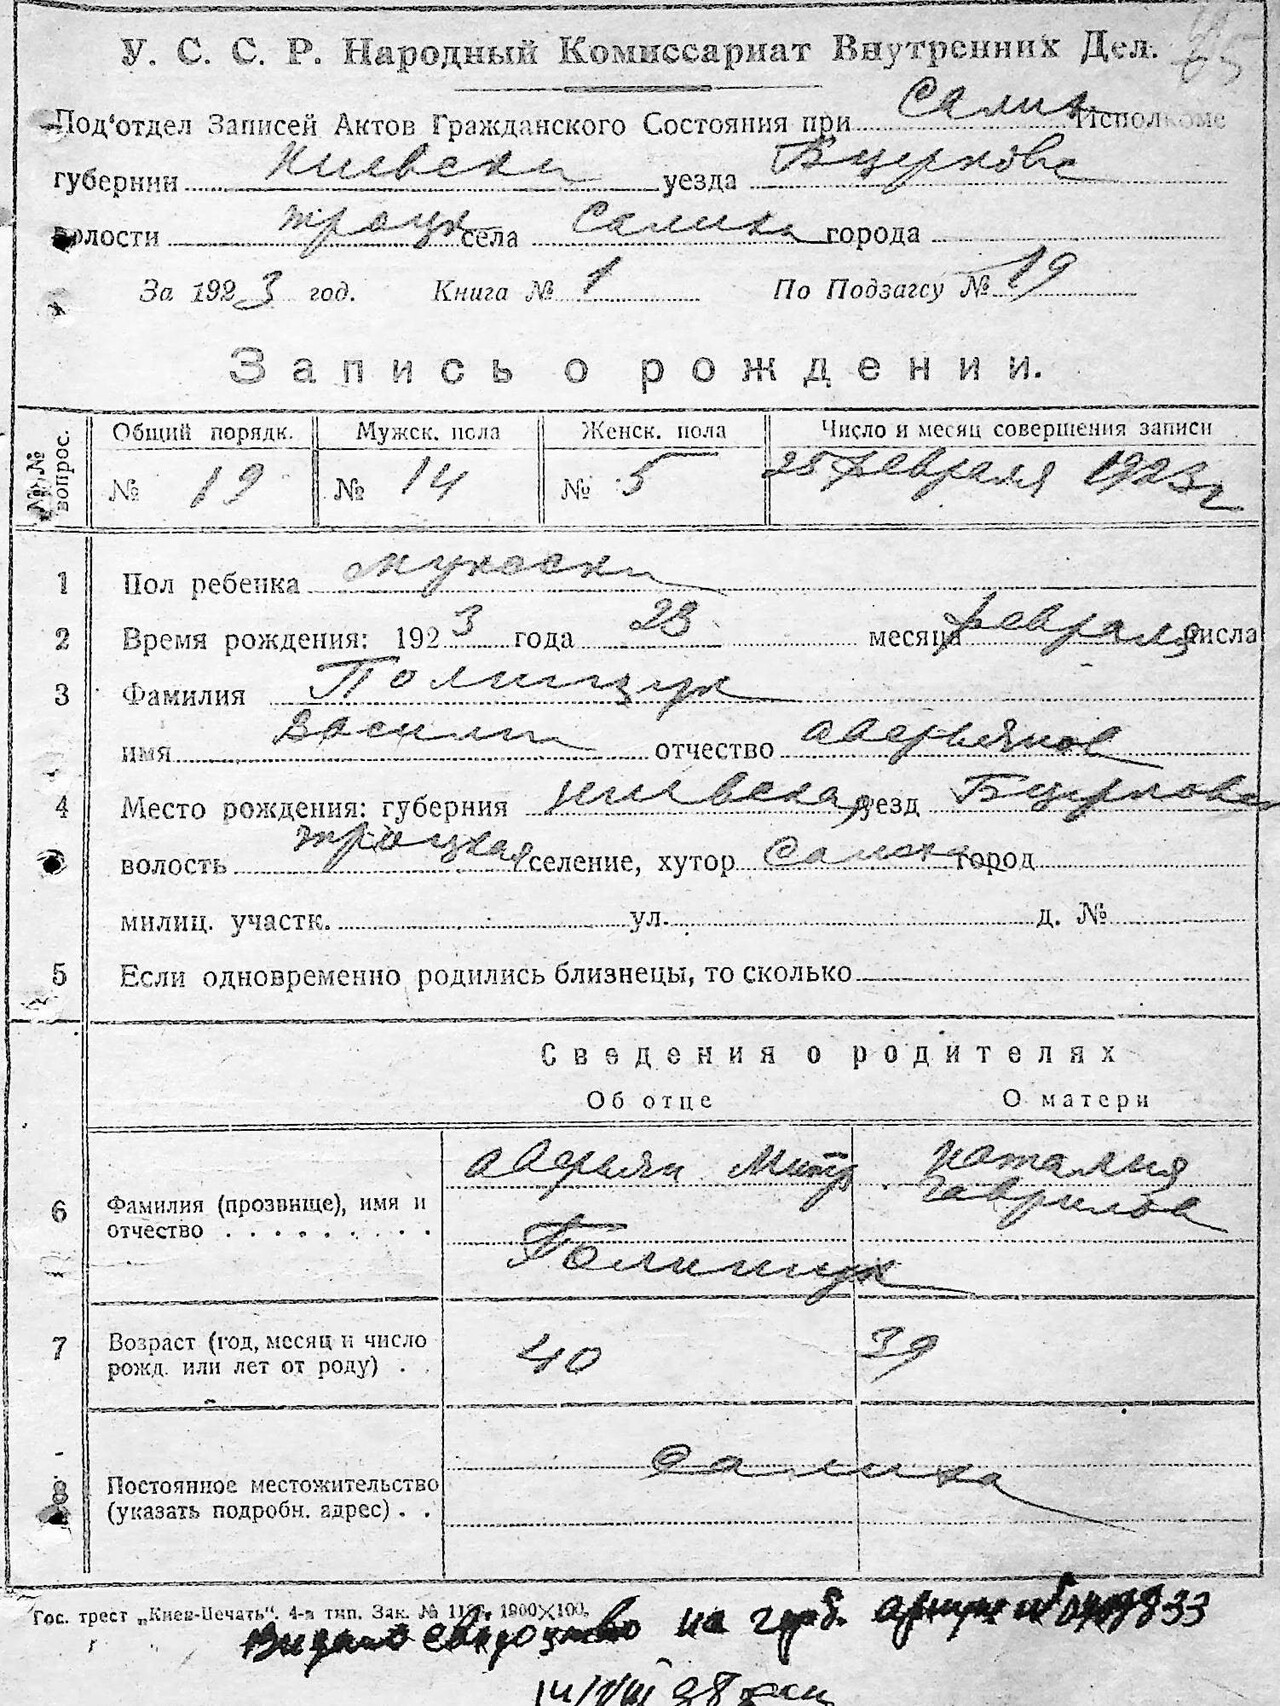 У. С. С. Р. Народный Комиссариат Внутренних Дел.
Под'отдел Записей Актов Гражданского Состояния при Салих Исполкоме
губернии Киевски уезда Бцерковс
волости троцк села Салиха города
За 1923 год. Книга № 1 По Подзагсу № 19
Запись о рождении.
№№ вопрос.
Общий порядк. Мужск. пола Женск. пола Число и месяц совершения записи
№ 19 № 14 № 5 25 февраля 1923 г
1 Пол ребенка мужски
2 Время рождения: 1923 года 23 месяца февраля числа
3 Фамилия Полищук
имя Васили отчество аверьянов
4 Место рождения: губерния киевская уезд Бцерковс
волость троцкая селение, хутор Салиха город
милиц. участк. ул. д. №
5 Если одновременно родились близнецы, то сколько
Сведения о родителях
Об отце О матери
6 Фамилия (прозвище), имя и отчество аверьян Митр наталья гаврилов
Полищук
7 Возраст (год, месяц и число рожд. или лет от роду) 40 39
8 Постоянное местожительство (указать подробн. адрес) Салиха
Гос. трест „Киев-Печать". 4-я тип. Зак. № 1900×100.
Видано свидоцтво на герб.
14/VIII 38